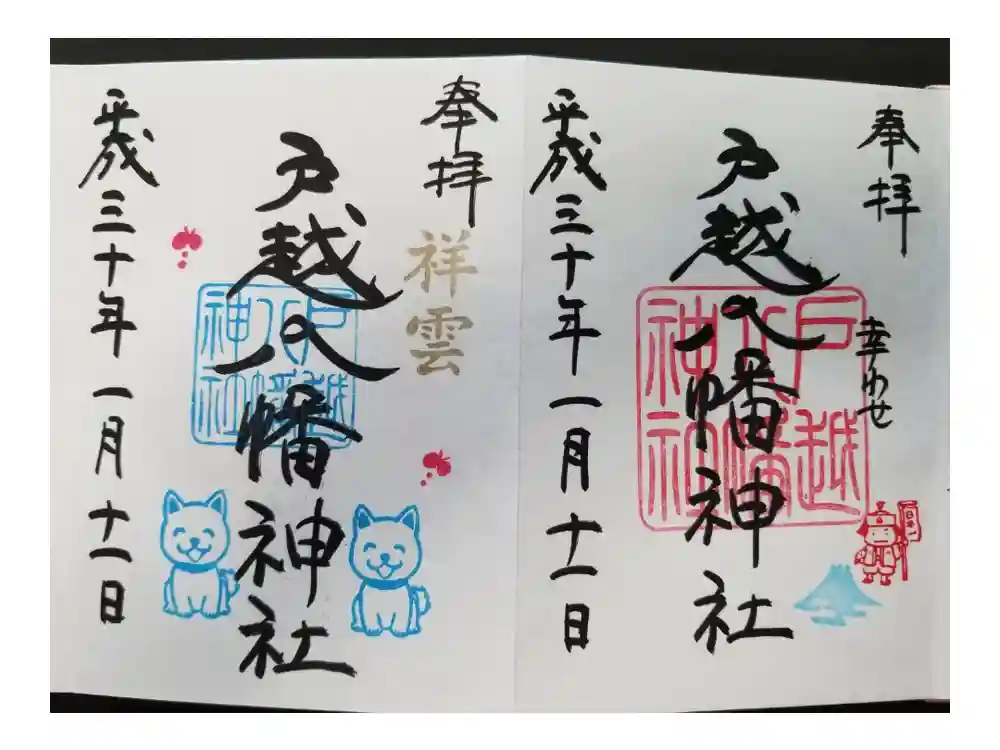 奉拝
幸わせ
戸越八幡神社
戸越八幡神社
日本一
平成三十年一月十一日
奉拝
祥雲
戸越八幡神社
戸越八幡神社
平成三十年一月十一日